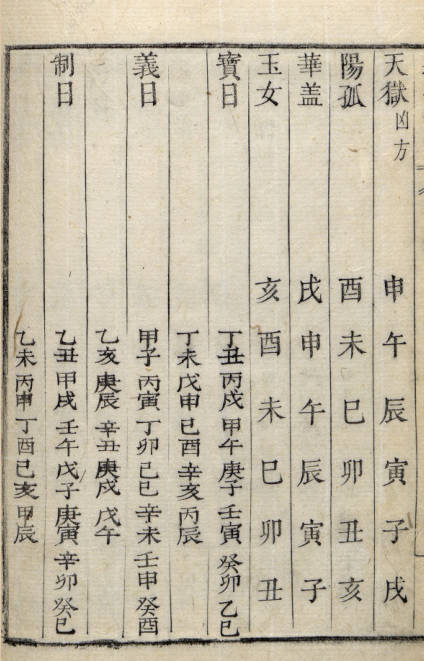 天獄凶方 申午辰寅子戌
陽孤 酉未巳卯丑亥
華盖 戌申午辰寅子
玉女 亥酉未巳卯丑
寶日 丁丑丙戌甲午庚子壬寅癸卯乙巳
丁未戊申己酉辛亥丙辰
義日 甲子丙寅丁卯己巳辛未壬申癸酉
乙亥庚辰辛丑庚戌戊午
制日 乙丑甲戌壬午戊子庚寅辛卯癸巳
乙未丙申丁酉己亥甲辰